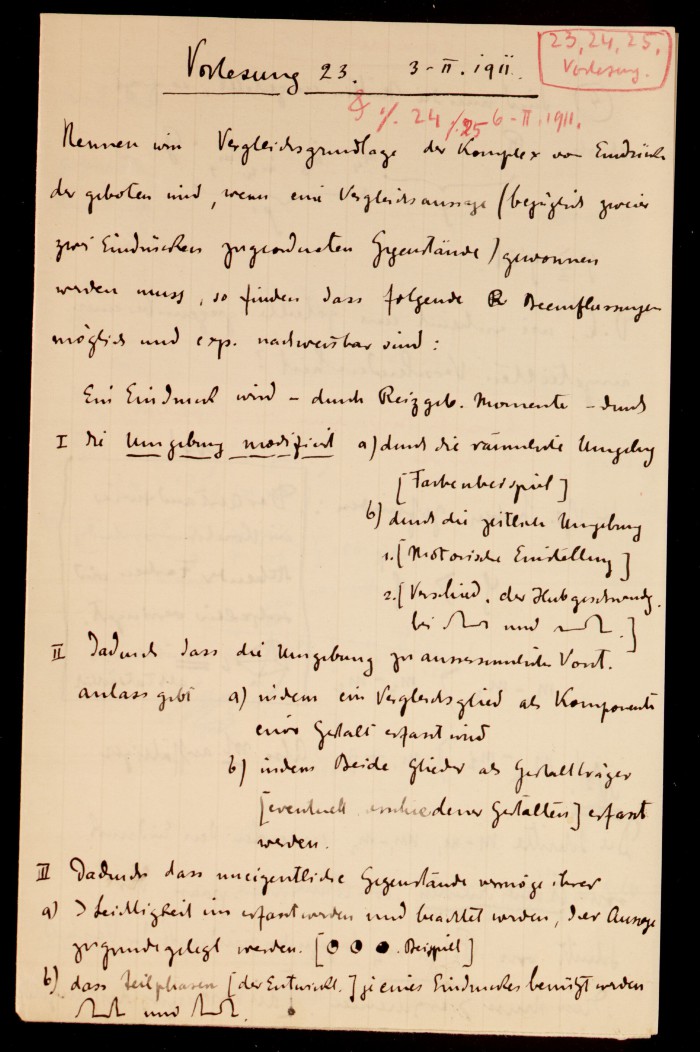 23, 24, 25,
Vorlesung.
Vorlesung 23. 3-II. 1911.
24 25 6-II. 1911.
Nennen wir Vergleichsgrundlage der Komplex von Eindrücken
der geboten wird, wenn eine Vergleichsaussage (bezüglich zweier
zwei Eindrücken zugeordneten Gegenstände) gewonnen
werden muss, so finden dass folgende Beeinflussungen
möglich und exp. nachweisbar sind:
Ein Eindruck wird – durch Reizgeb. Momente – durch
I die Umgebung modifiziert a) durch die räumliche Umgebg
[Farbenbeispiel]
b) durch die zeitliche Umgebung
1. [Motorische Einstellung]
2. [Verschied. der Hubgeschwindg.
bei und .]
II Dadurch dass die Umgebung zu aussersinnlichen Vorst.
anlass gibt a) indem ein Vergleichsglied als Komponente
einer Gestalt erfasst wird
b) indem Beide Glieder als Gestaltträger
[eventuell verschiedener Gestalten] erfasst
werden.
III Dadurch dass uneigentliche Gegenstände vermöge ihrer
a) Leichtigkeit erfasst werden und beachtet werden, der Aussage
zugrundegelegt werden. [ Beispiel]
b) dass Teilphasen [der Entwickl.] je eines Eindruckes benützt werden
und .